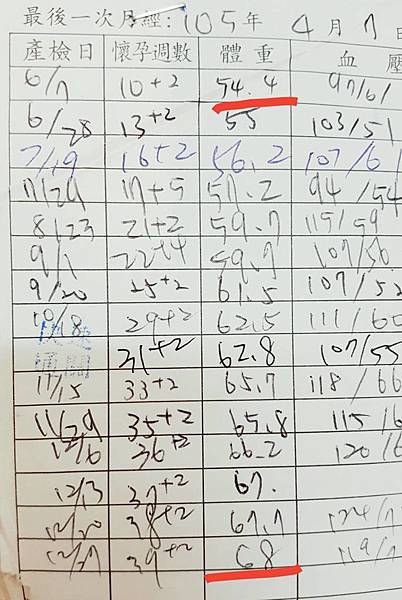 最後一次月經：105年 4月7日
產檢日 懷孕週數 體重 血壓
6/7 10+2 54.4 97/61
6/28 13+2 55 103/51
7/19 16+2 56.2 107/61
7/29 17+5 57.2 94/54
8/23 21+2 59.7 115/59
9/1 22+4 59.7 107/56
9/20 25+2 61.5 107/52
10/8 29+2 62.5 111/60
快速通關 31+2 62.8 107/55
11/15 33+2 65.7 118/66
11/29 35+2 65.8 115/6
12/6 36+2 66.2 120/6
12/13 37+2 67.
12/20 38+2 67.7 124/7
12/27 39+2 68 119/7